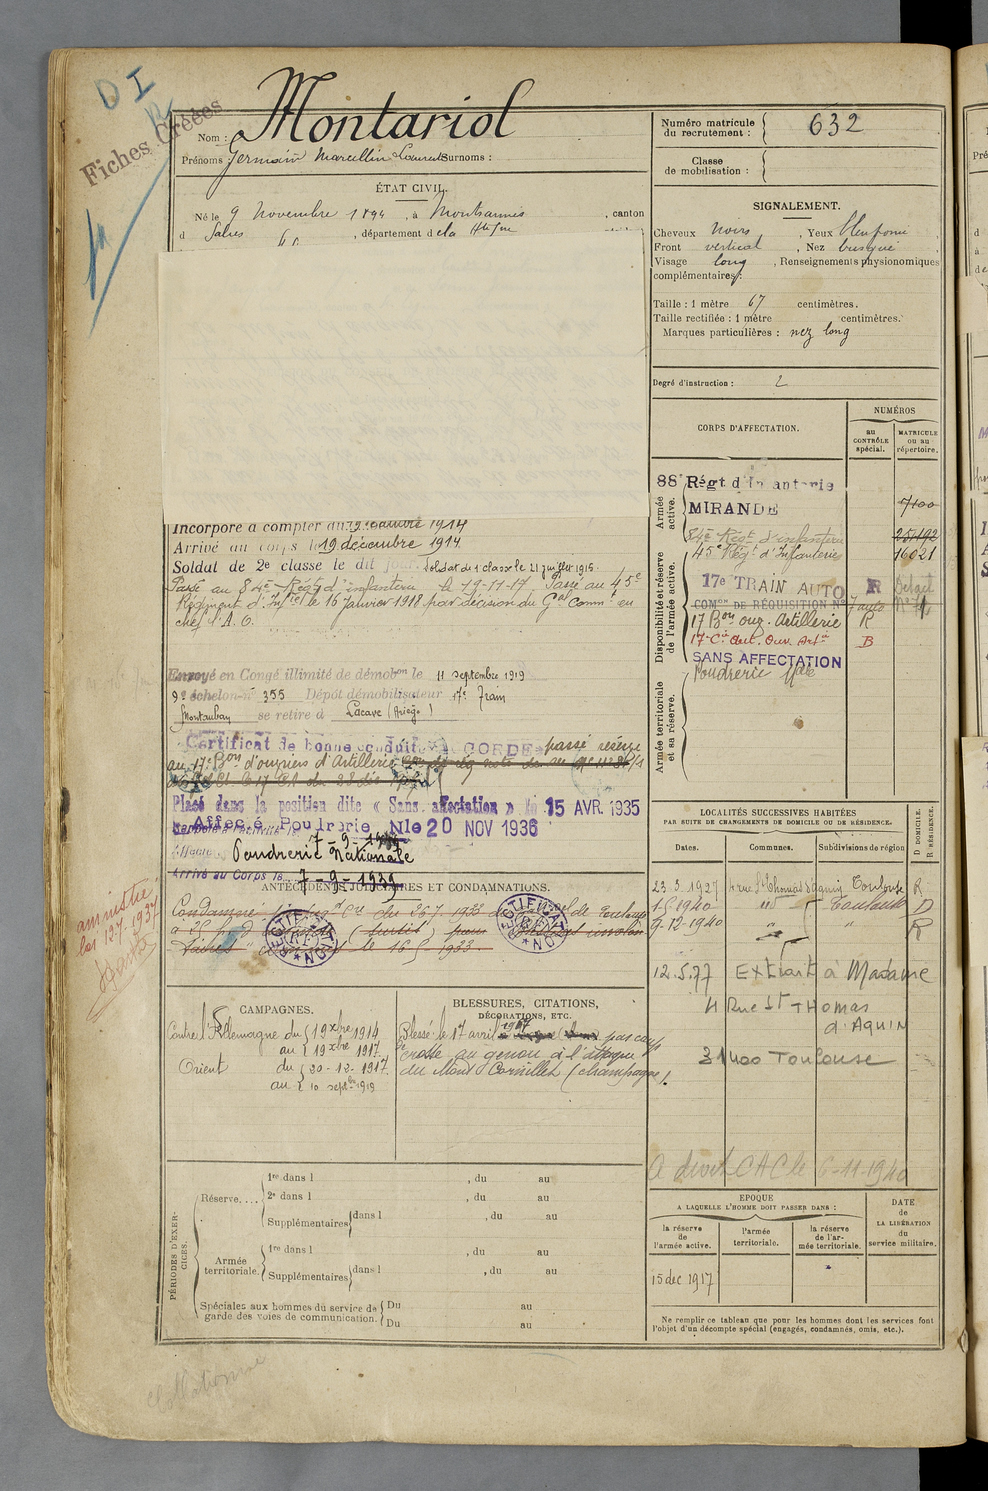 D I
Fiches Créées
Nom : Montariol
Prénoms : Germain Marcellin Laurent Surnoms :
Numéro matricule du recrutement : 632
Classe de mobilisation :
ÉTAT CIVIL.
Né le 9 Novembre 1894, à Montsaunès, canton
d Salies, département d e la Hte Gne
SIGNALEMENT.
Cheveux noirs, Yeux bleu foncé
Front vertical, Nez busqué
Visage long, Renseignements physionomiques
complémentaires :
Taille : 1 mètre 67 centimètres.
Taille rectifiée : 1 mètre centimètres.
Marques particulières : nez long
Degré d'instruction : 2
CORPS D'AFFECTATION.
NUMÉROS
au CONTRÔLE spécial.
MATRICULE ou au répertoire.
Armée active.
88e Régt d'Infanterie
MIRANDE
7100
84e Régt d'infanterie 25192
45e Régt d'Infanterie 16021
Disponibilité et réserve de l'armée active.
17e TRAIN AUTO R
COMon DE RÉQUISITION No 7 auto
17 Bon ouv. Artillerie R
17e Cie aut. Ouv. Artie B
SANS AFFECTATION
Poudrerie Nale
Armée territoriale et sa réserve.
Incorporé à compter du 19 décembre 1914
Arrivé au corps le 19 décembre 1914
Soldat de 2e classe le dit jour. Soldat de 1e classe le 21 juillet 1915.
Passé au 84e Régt d'infanterie le 19-11-17. Passé au 45e
Régiment d'Infie le 16 Janvier 1918 par décision du Gal Commt en
chef l'A. O.
Envoyé en Congé illimité de démobon le 11 septembre 1919
9e échelon n° 355 Dépôt démobilisateur 17e Train
Montauban se retire à Lacave (Ariège)
Certificat de bonne conduite ACCORDÉ passé réserve
au 17e Bon d'ouvriers d'Artillerie
Placé dans la position dite « Sans affectation » le 15 AVR. 1935
Affecté Poudrerie Nle 20 NOV 1936
7-9-1939
Poudrerie Nationale
Arrivé au Corps le 7-9-1939
ANTÉCÉDENTS JUDICIAIRES ET CONDAMNATIONS.
RECTIFICATION
RECTIFICATION
amnistie
loi 12.7.1937
LOCALITÉS SUCCESSIVES HABITÉES
PAR SUITE DE CHANGEMENTS DE DOMICILE OU DE RÉSIDENCE.
Dates. Communes. Subdivisions de région
D DOMICILE. R RÉSIDENCE.
23.3.1927 4 rue St Thomas d'Aquin Toulouse R
Toulouse D
9-12-1940 " R
12.5.77 Extrait à Madame
4 Rue St THomas
d'AQUIN
31400 Toulouse
A droit CAC le 6-11-1940
CAMPAGNES.
Contre l'Allemagne du 19 Xbre 1914
au 19 Xbre 1917
Orient du 20-12-1917
au 10 septbre 1919
BLESSURES, CITATIONS, DÉCORATIONS, ETC.
Blessé le 17 avril 1917 par coup
de crosse au genou à l'attaque
du Mont Cornillet (champagne).
PÉRIODES D'EXERCICES.
Réserve....
1re dans l , du au
2e dans l , du au
Supplémentaires dans l , du au
Armée territoriale.
1re dans l , du au
Supplémentaires dans l , du au
Spéciales aux hommes du service de garde des voies de communication.
Du au
Du au
EPOQUE
A LAQUELLE L'HOMME DOIT PASSER DANS :
la réserve de l'armée active.
l'armée territoriale.
la réserve de l'armée territoriale.
DATE de LA LIBÉRATION du service militaire.
15 dec 1917
Ne remplir ce tableau que pour les hommes dont les services font
l'objet d'un décompte spécial (engagés, condamnés, omis, etc.).